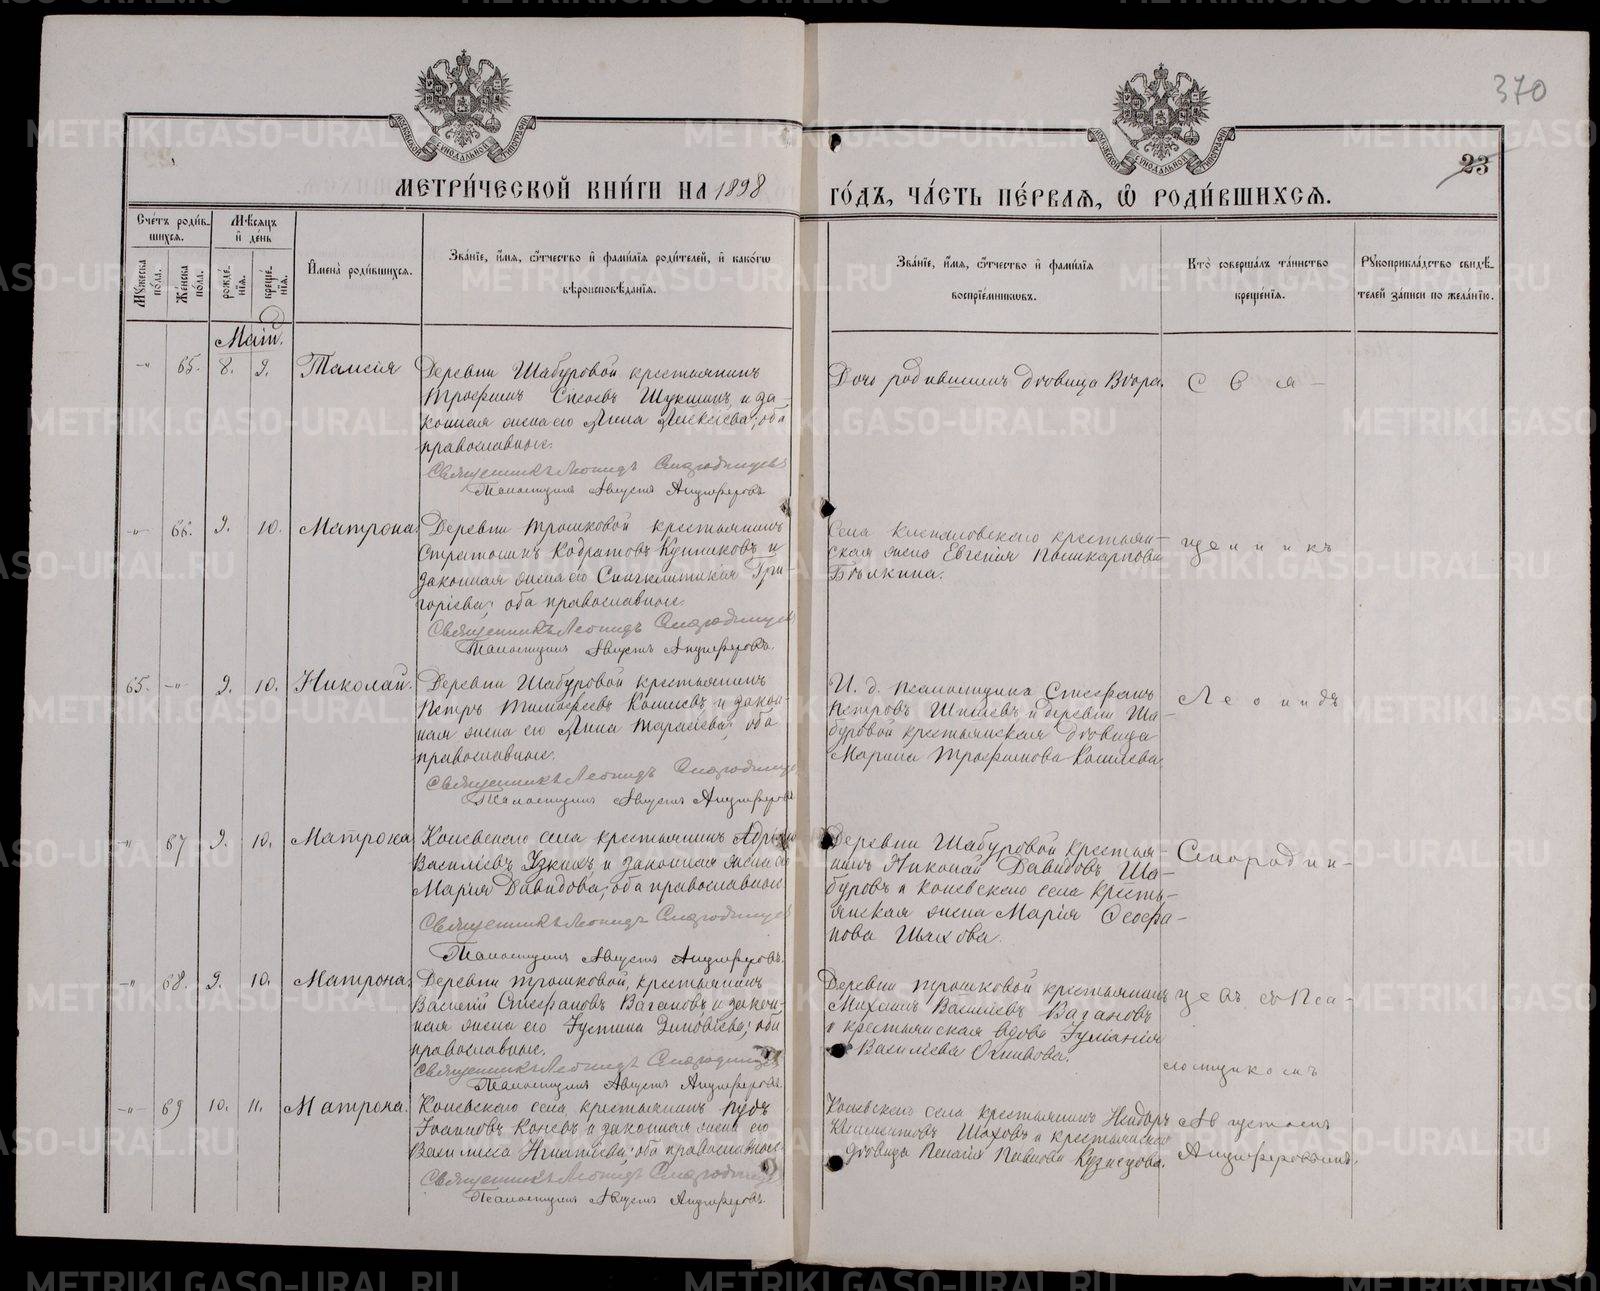 370
23
МЕТРИ́ЧЕСКОЙ КНИ́ГИ НА 1898 ГО́ДЪ, ЧА́СТЬ ПЕ́РВАЯ, Ѡ РОДИ́ВШИХСЯ.
Сче́тъ роди́вшихся.
Мѣ́сяцъ и де́нь
Му́жеска по́ла.
Же́нска по́ла.
рожде́нія.
креще́нія.
Имена̀ роди́вшихся.
Зва́ніе, и́мя, о́тчество и фами́лія роди́телей, и како́гѡ
вѣроисповѣ́данія.
Зва́ніе, и́мя, о́тчество и фами́лія
воспріе́мниковъ.
Кто̀ соверша́лъ та́инство
креще́нія.
Рукоприкла́дство свидѣ́телей за́писи по жела́нію.
Май.
-„- 65. 8. 9. Таисія
Деревни Шабуровой крестьянинъ
Трофимъ Сысоевъ Шукшинъ и за-
конная жена его Анна Алексѣева; оба
православные.
Священникъ Леонидъ Смородинцевъ
Псаломщикъ Августъ Анциферовъ
Дочь родившихъ дѣвица Вѣра.
С в я -
-„- 66. 9. 10. Матрона.
Деревни Трошковой крестьянинъ
Кодратовъ и
законная жена его Синклитикія Гри-
горіева; оба православные.
Священникъ Леонидъ Смородинцевъ
Псаломщикъ Августъ Анциферовъ.
Села крестьян-
ская жена Евгенія
щ е н н и к ъ
65. -„- 9. 10. Николай.
Деревни Шабуровой крестьянинъ
Петръ Тимофеевъ Кошевъ и закон-
ная жена его Анна Тарасіева; оба
православные.
Священникъ Леонидъ Смородинцевъ
Псаломщикъ Августъ Анциферовъ
И. д. псаломщика Стефанъ
Петровъ и деревни Ша-
буровой крестьянская дѣвица
Марина Трофимова
Л е о н и д ъ
-„- 67 9. 10. Матрона
Коневскаго села крестьянинъ
Василіевъ Узкихъ и законная жена его
Марія Давидова; оба православные.
Священникъ Леонидъ Смородинцевъ
Псаломщикъ Августъ Анциферовъ.
Деревни Шабуровой крестья-
нинъ Николай Давидовъ Ша-
буровъ и Коневскаго села кресть-
янская жена Марія Ѳеофа-
нова Шахова.
С м о р о д и н -
-„- 68. 9. 10. Матрона.
Деревни Трошковой, крестьянинъ
Василій Стефановъ Вагановъ и закон-
ная жена его Іустина Зиновіева; оба
православные.
Священникъ Леонидъ Смородинцевъ
Псаломщикъ Августъ Анциферовъ.
Деревни Трошковой крестьянинъ
Михаилъ Василіевъ Вагановъ
и крестьянская вдова Іуліанія
Василіева
ц е в ъ съ Пса-
ломщикомъ
-„- 69 10. 11. Матрона.
Коневскаго села, крестьянинъ Пудъ
Іоанновъ Коневъ и законная жена его
Василиса Игнатіева; оба православные
Священникъ Леонидъ Смородинцевъ
Псаломщикъ Августъ Анциферовъ.
Коневскаго села крестьянинъ
Климентовъ Шаховъ и крестьянская
дѣвица Пелагія Павлова Кузнецова.
Августомъ
Анциферовымъ.